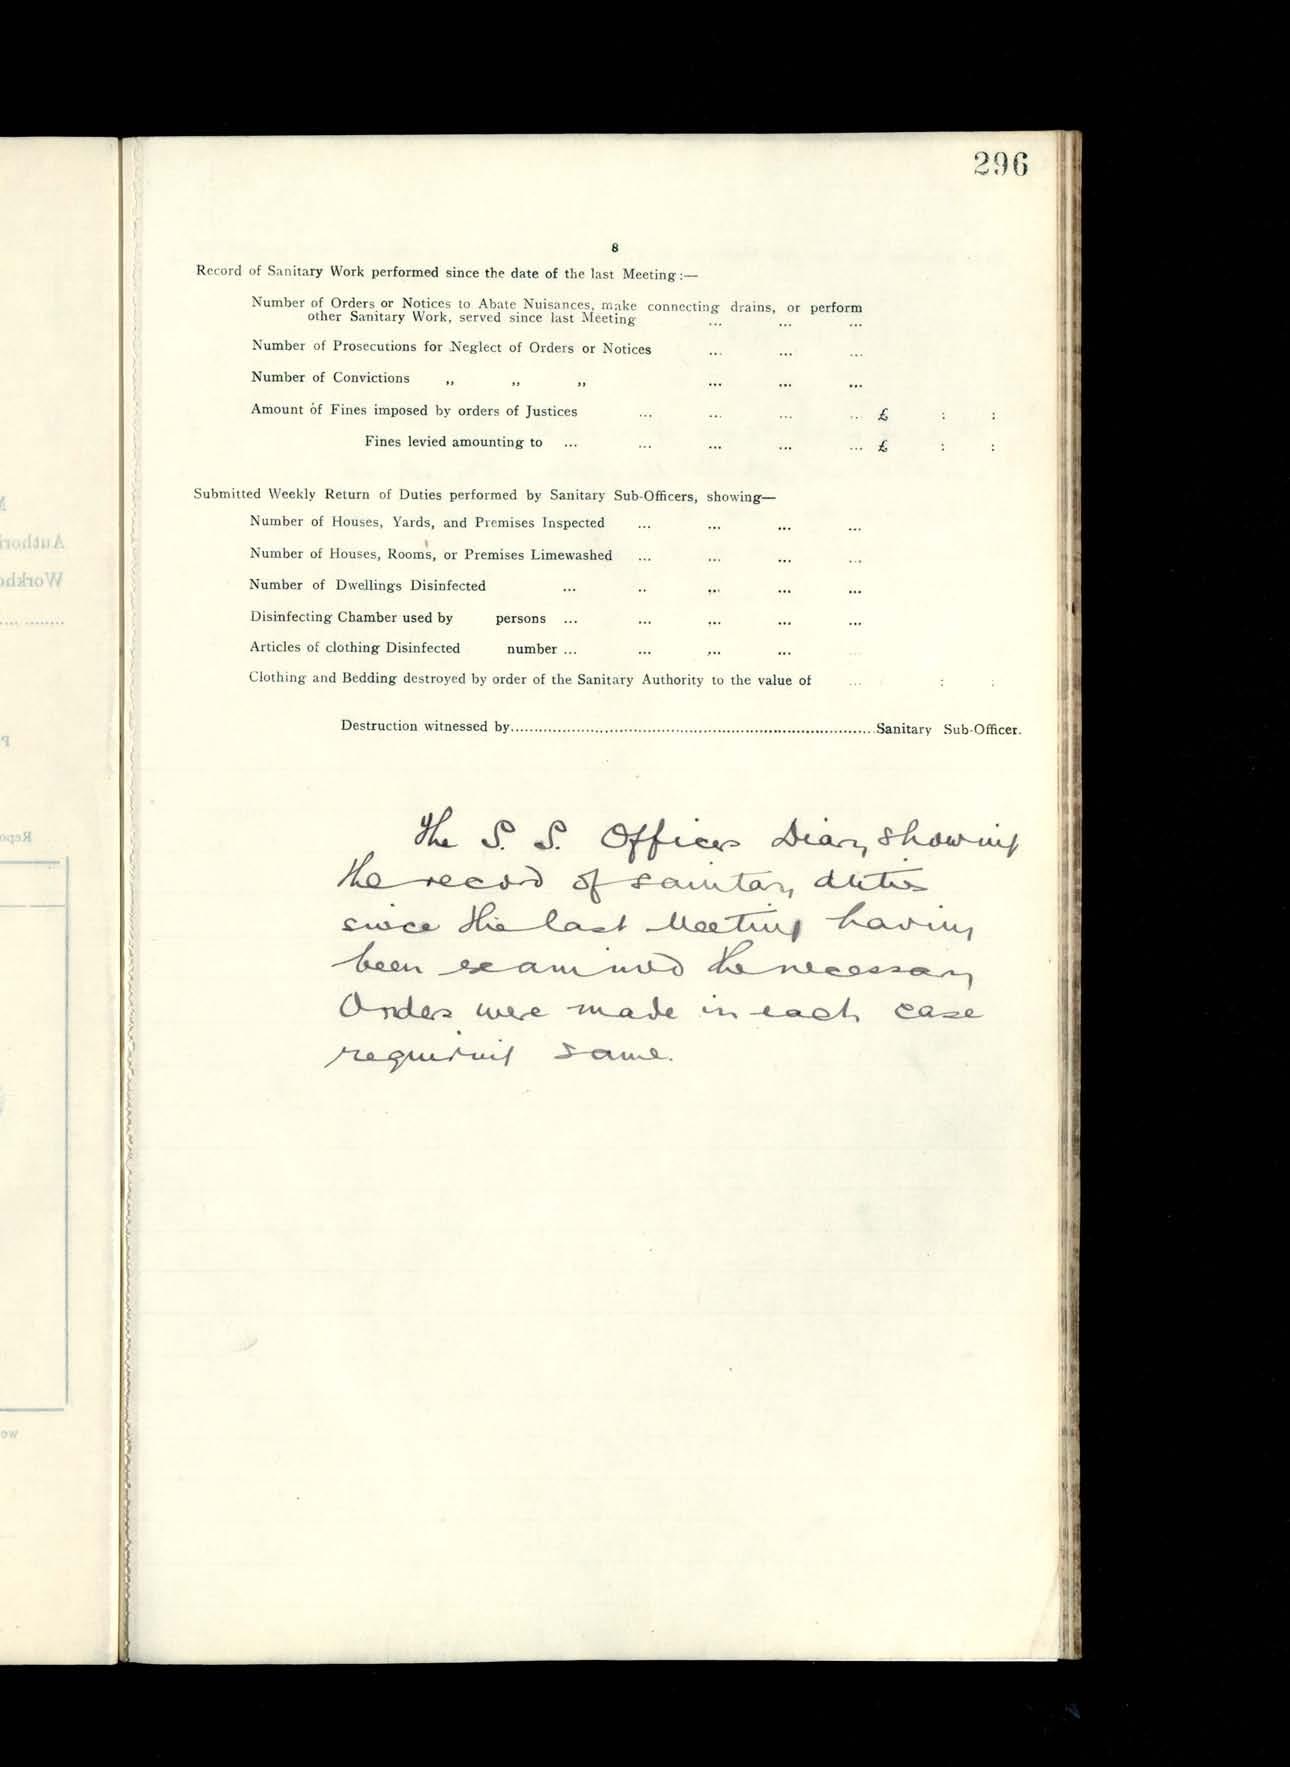 296
8
Record of Sanitary Work performed since the date of the last Meeting:—
Number of Orders or Notices to Abate Nuisances, make connecting drains, or perform
other Sanitary Work, served since last Meeting ... ... ...
Number of Prosecutions for Neglect of Orders or Notices ... ... ...
Number of Convictions ,, ,, ,, ... ... ...
Amount of Fines imposed by orders of Justices ... ... ... ... £ : :
Fines levied amounting to ... ... ... ... ... £ : :
Submitted Weekly Return of Duties performed by Sanitary Sub-Officers, showing—
Number of Houses, Yards, and Premises Inspected ... ... ... ...
Number of Houses, Rooms, or Premises Limewashed ... ... ... ...
Number of Dwellings Disinfected ... .. ... ... ...
Disinfecting Chamber used by persons ... ... ... ... ...
Articles of clothing Disinfected number ... ... ... ... ...
Clothing and Bedding destroyed by order of the Sanitary Authority to the value of ... : :
Destruction witnessed by..............................Sanitary Sub-Officer.
The S. S. Officers Diary showing
the record of sanitary duties
since the last Meeting having
been examined the necessary
Orders were made in each case
requiring same.